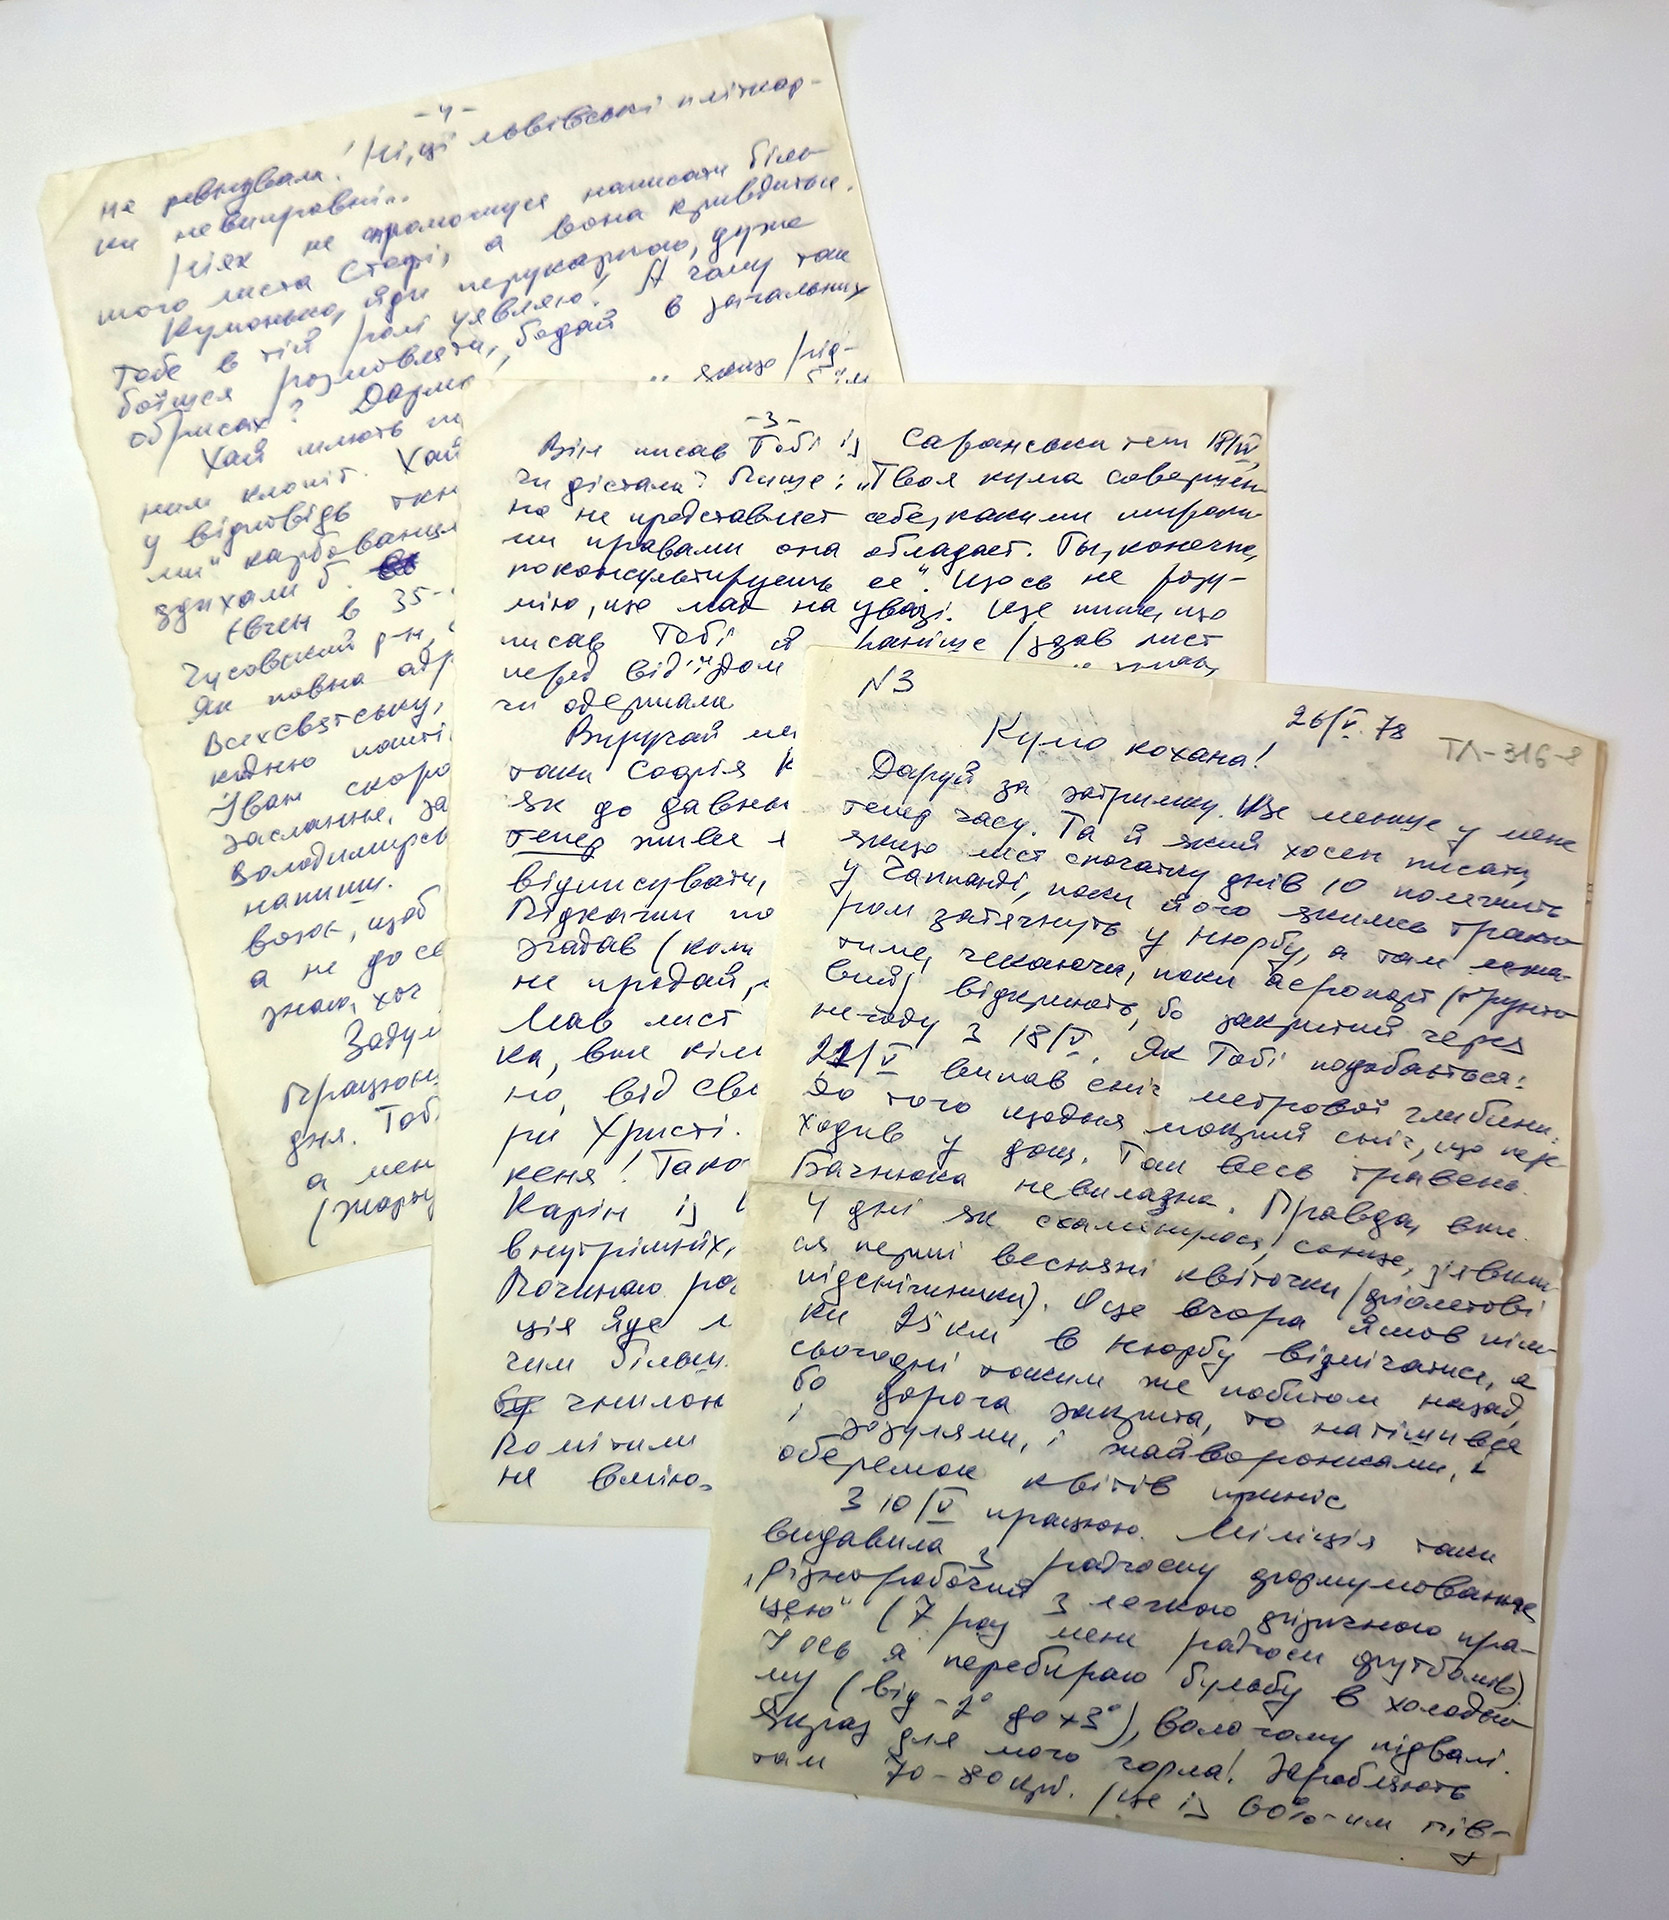 -4-
не ревнувала! Ні, ці львівські пліткар-
ки невиправні..
Ніяк не спроможуся написати біль-
шого листа Стефі, а вона кривдиться.
Кумонько, йди перукарною, дуже
Тебе в тій ролі уявляю! А чому так
боїшся розмовляти, бодай в загальних
обрисах? Дарма
якщо /під-
Хай шлють
ним клопіт. Хай
у відповідь ткн
ми" карбованця
здихали б.
Євген в 35-
Чусовский р-н,
Як повна адр
Всехсвятську,
кідною пошті
Іван скоро
заслання, за
Володимирсь
напиши.
возок, щоб
а не до се
знаю, хоч
Задум
Працюю
дня. Тоб
а мен
-3-
Він писав Тобі із Саранська теж 18/IV,
чи дістала? Пише: „Твоя кума совершен-
но не представляет себе, какими широки-
ми правами она обладает. Ты, конечно,
поконсультируешь ее". Щось не розу-
мію, що має на увазі. Ще пише, що
писав Тобі й раніше /здав лист
перед від'їздом
чи одержала
Виручай ме
таки Софія К
як до давнь
тепер живе
відписувати,
Підкачай по
згадав (коли
не продай,
Мав лист
ка, вже кіль
но, від Сві
ри Христі.
кеня! Тако
Карін із
внутрішніх,
Починаю ро
ція йде
чим більш
чмилок
Помітили
не вмію.
N3
26/V.78
ТЛ-316-8
Кумо кохана!
Даруй за затримку. Ще менше у мене
тепер часу. Та й який хосен писати,
якщо лист спочатку днів 10 полежить
у Чаппанді, поки його якимсь тракто-
ром затягнуть у Нюрбу, а там лежа-
тиме, чекаючи, поки аеропорт (ґрунто-
вий) відкриють, бо закритий через
негоду з 18/V. Як Тобі подобається:
21/V випав сніг метрової глибини.
До того щодня мокрий сніг, що пере-
ходив у дощ. Так весь травень.
Багнюка невилазна. Правда, вже
4 дні як схаменулося, сонце, з'явили-
ся перші весняні квіточки (фіолетові
підсніжники). Оце вчора йшов піш-
ки 25 км в Нюрбу відмічатися, а
сьогодні таким же побитом назад,
бо дорога закрита, то натішився
і зозулями, і жайворонками, і
оберемок квітів приніс
З 10/V працюю. Міліція таки
видавила з радгоспу формулювання
„Різноробочий з легкою фізичною пра-
цею" (7 раз мене радгосп футболив)
І ось я перебираю бульбу в холодно-
му (від -2° до +3°), вологому підвалі.
Якраз для мого горла! Заробляють
там 70-80 крб. /це із 60%-им пів-